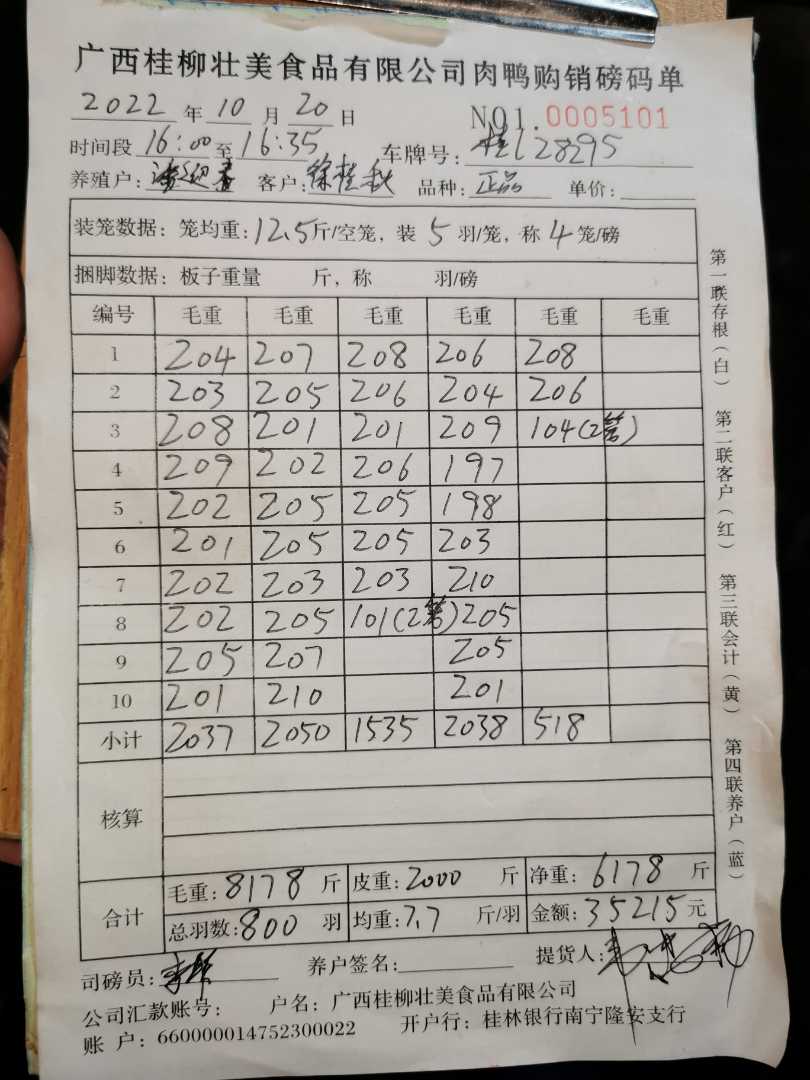 广西桂柳壮美食品有限公司肉鸭购销磅码单
2022 年 10 月 20 日 NO1. 0005101
时间段 16:00 至 16:35 车牌号: 桂L28295
养殖户: 客户: 徐桂秋 品种: 正品 单价:
装笼数据: 笼均重: 12.5 斤/空笼, 装 5 羽/笼, 称 4 笼/磅
捆脚数据: 板子重量 斤, 称 羽/磅
编号 毛重 毛重 毛重 毛重 毛重 毛重
1 204 207 208 206 208
2 203 205 206 204 206
3 208 201 201 209 104(2笼)
4 209 202 206 197
5 202 205 205 198
6 201 205 205 203
7 202 203 203 210
8 202 205 101(2笼) 205
9 205 207 205
10 201 210 201
小计 2037 2050 1535 2038 518
核算
合计
毛重: 8178 斤 皮重: 2000 斤 净重: 6178 斤
总羽数: 800 羽 均重: 7.7 斤/羽 金额: 35215 元
司磅员: 养户签名: 提货人:
公司汇款账号: 户名: 广西桂柳壮美食品有限公司
账 户: 660000014752300022 开户行: 桂林银行南宁隆安支行
第一联存根(白) 第二联客户(红) 第三联会计(黄) 第四联养户(蓝)